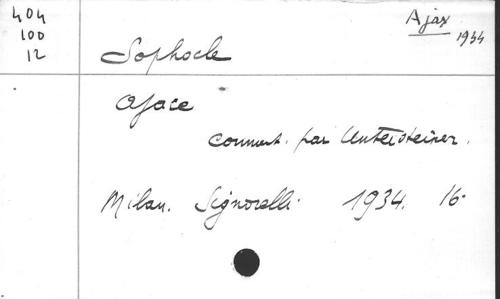 404
100
12
Ajax
1934
Sophocle
Ajace
comment. par Untersteiner.
Milan. Signorelli. 1934. 16°